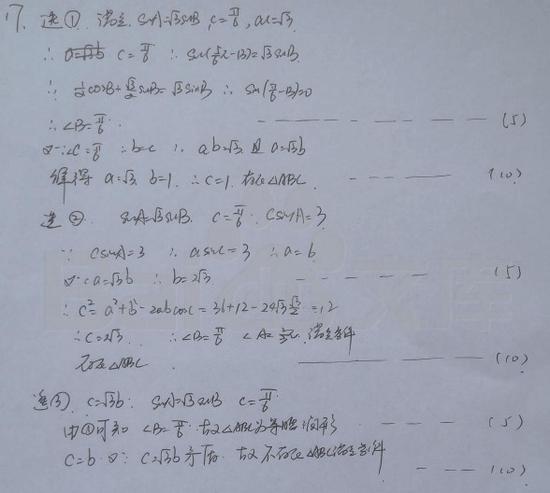 17. 选① 满足 sinA=√3sinB, C=π/6, ac=√3
∴ a=√3b C=π/6 ∴ sin(5/6π-B)=√3sinB
∴ 1/2cosB+√3/2sinB=√3sinB ∴ sin(π/6-B)=0
∴ ∠B=π/6 (5)
又∵∠C=π/6 ∴b=c ∴ ab=√3 且 a=√3b
解得 a=√3 b=1 ∴c=1 存在△ABC (10)
选② sinA=√3sinB C=π/6 csinA=3
∵ csinA=3 ∴ asinC=3 ∴a=6
又∵a=√3b ∴ b=2√3 (5)
∴ c²=a²+b²-2abcosC=36+12-24√3·√3/2=12
∴C=2√3 ∴∠B=π/6 ∠A=2/3π 满足条件
存在△ABC (10)
选③ c=√3b sinA=√3sinB C=π/6
由①可知 ∠B=π/6 故△ABC为等腰 (5)
C=b 又∵ C=√3b矛盾 故不存在△ABC满足条件 (10)